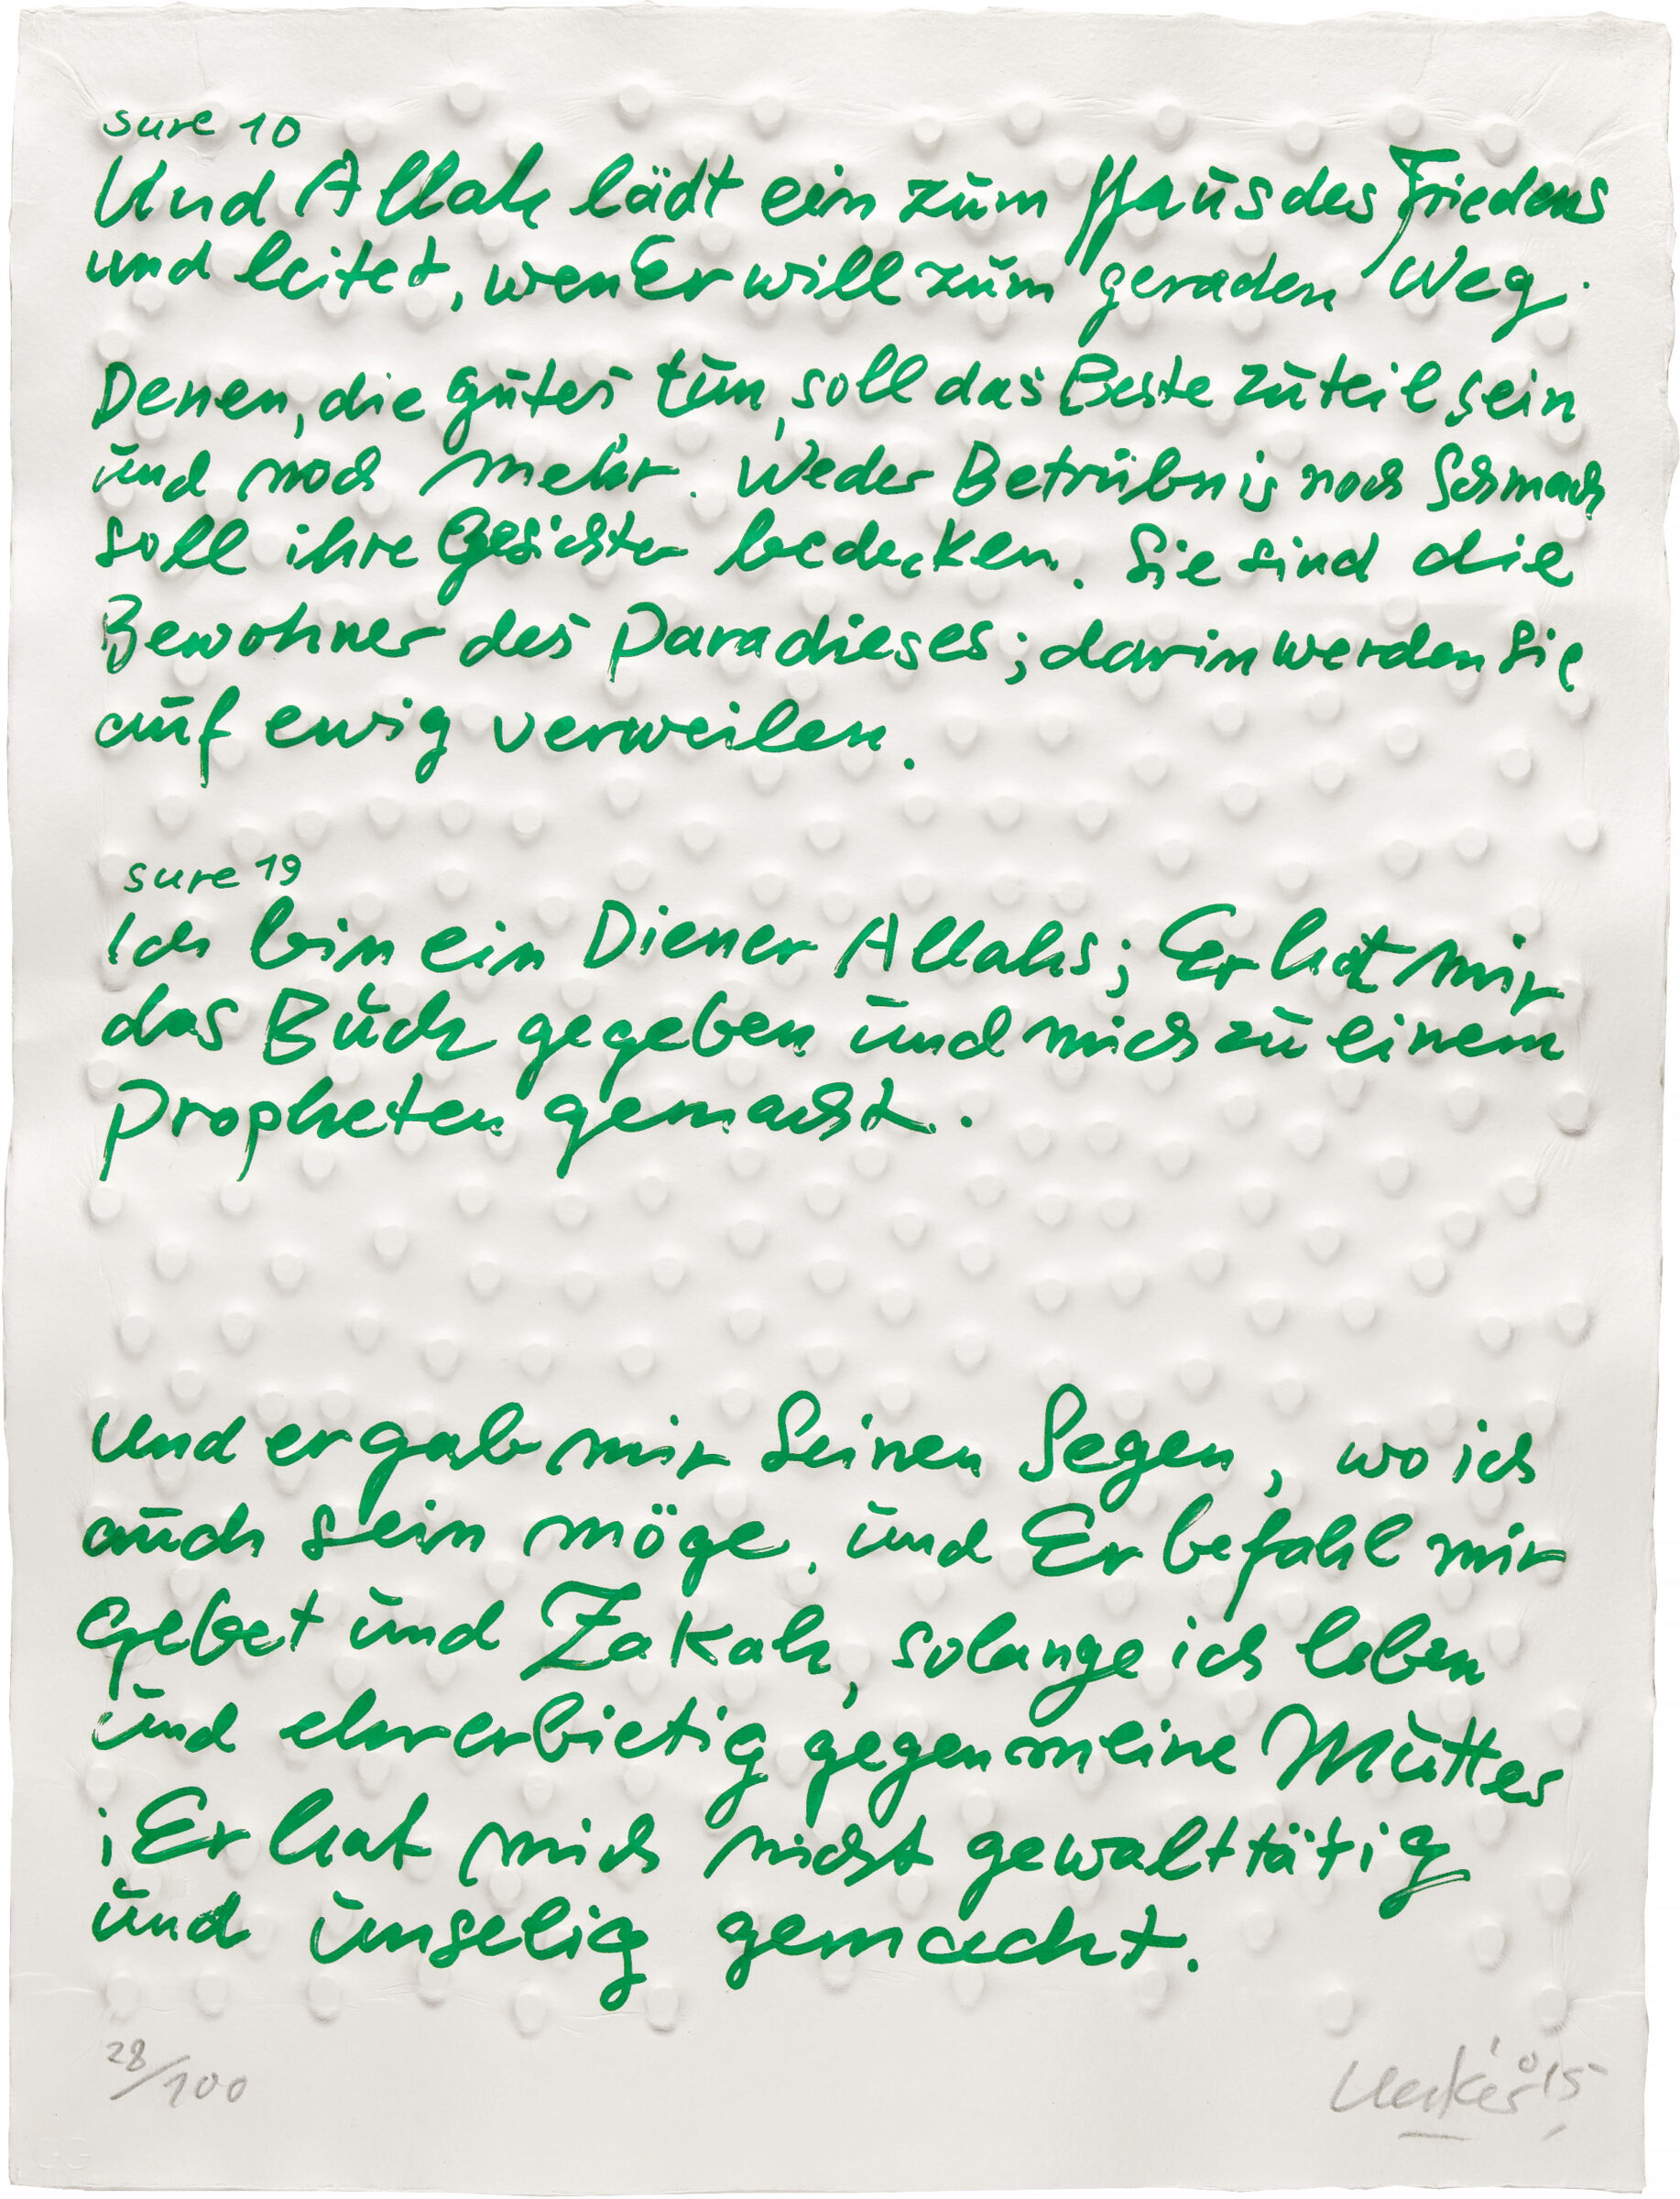 sure 10
Und Allah lädt ein zum Haus des Friedens
und leitet, wen Er will zum geraden Weg.
Denen, die gutes tun, soll das Beste zuteil sein
und noch mehr. Weder Betrübnis noch Schmach
soll ihre Gesichter bedecken. Sie sind die
Bewohner des Paradieses; darin werden sie
auf ewig verweilen.
sure 19
Ich bin ein Diener Allahs; Er hat mir
das Buch gegeben und mich zu einem
Propheten gemacht.
Und er gab mir Seinen Segen, wo ich
auch sein möge, und Er befahl mir
Gebet und Zakah, solange ich leben
und ehrerbietig gegen meine Mutter
; Er hat mich nicht gewalttätig
und unselig gemacht.
28/100
Uecker '015